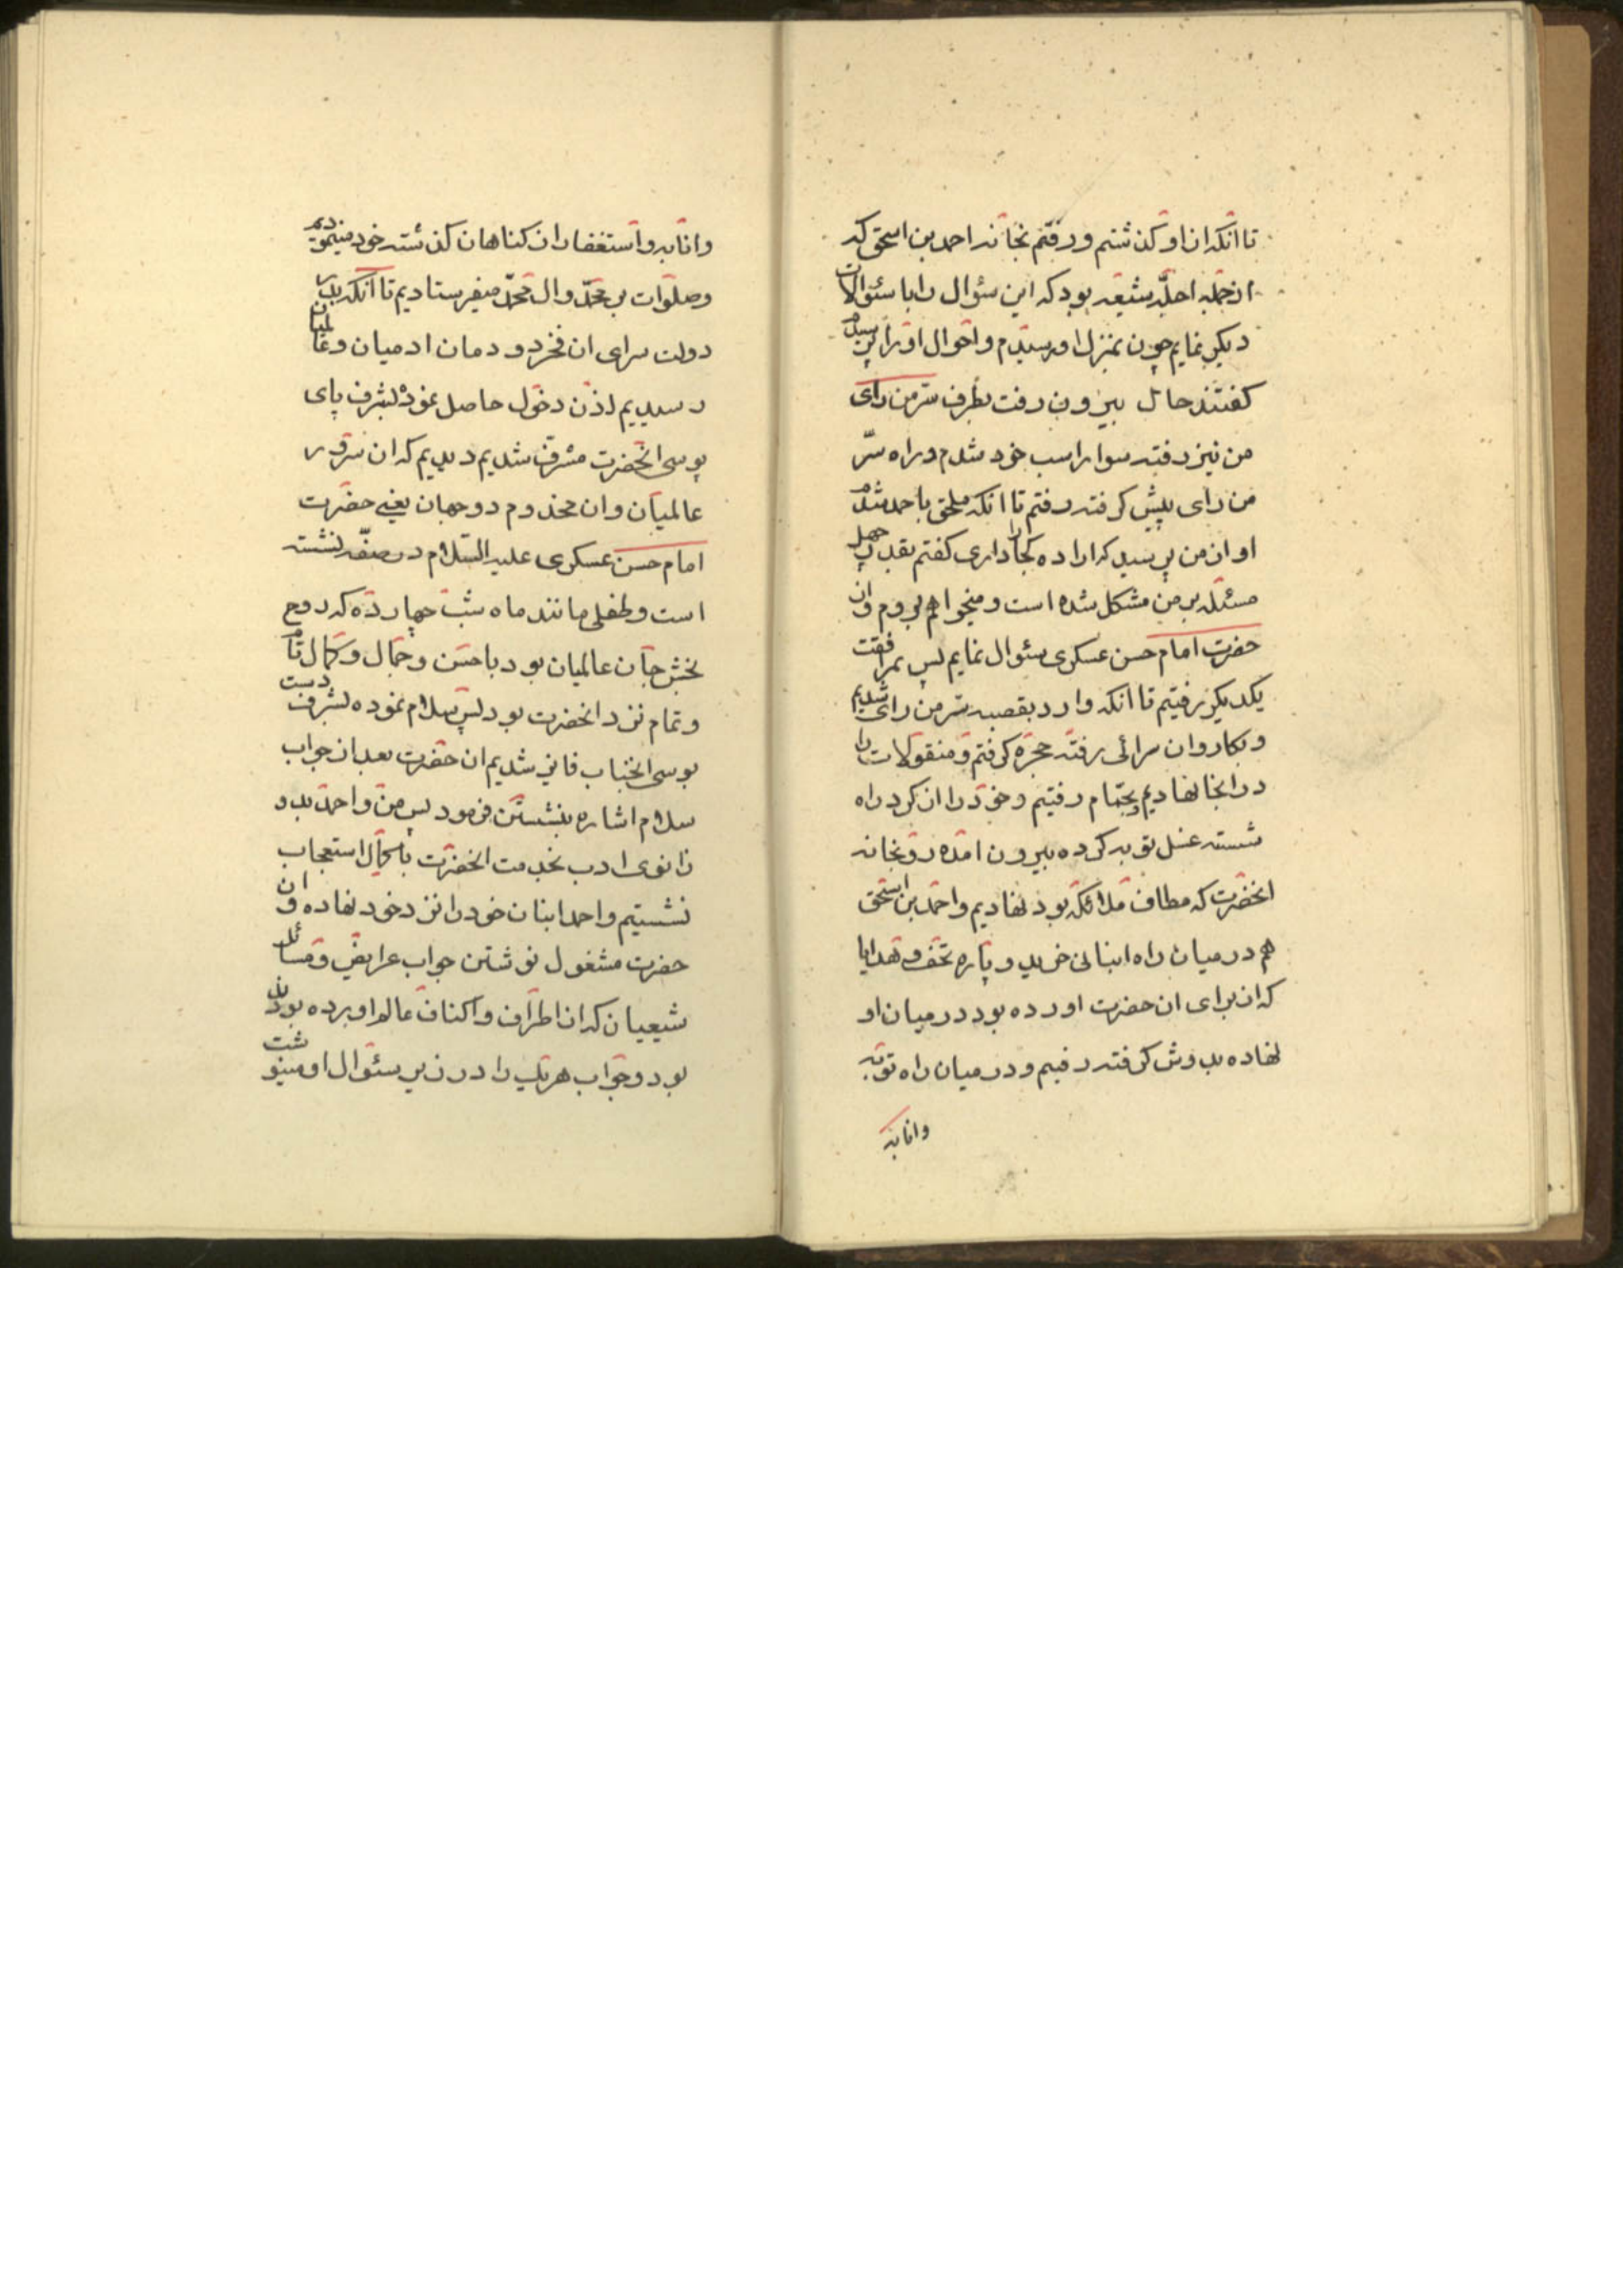 تا انکه از او گذشتم و رفتم بخانه احمد بن اسحق که
از جمله اجلّه شیعه بود که این سئوال را با سئوالات
دیکر نمایم چون بمنزل او رسیدم و احوال او را پرسیدم
کفتند حال بیرون رفت بطرف سرّ من رای
من نیز رفته سوار اسب خود شدم و راه سرّ
من رای پیش کرفته رفتم تا انکه ملحق باحمد شدم
او از من پرسید که اراده کجا را داری کفتم بقدر چهل
مسئله بر من مشکل شده است و میخواهم بروم و از
حضرت امام حسن عسکری سئوال نمایم پس بمرافقت
یکدیکر رفتیم تا انکه وارد بقصبه سرّ من رای شدیم
و بکاروان سرائی رفته حجره کرفتم و منقولات را
در انجا نهادیم و بحمّام رفتیم و خود را از کرد راه
شسته غسل توبه کرده بیرون امده رو بخانه
انحضرت که مطاف ملائکه بود نهادیم و احمد بن اسحق
هم در میان راه انبانی خرید و پاره تحف و هدایا
که از برای ان حضرت اورده بود در میان او
نهاده بدوش کرفته رفتیم و در میان راه توبه
وانابه
وانابه و استغفار از کناهان کذشته خود مینمودیم
و صلوات بر محمّد و ال محمّد میفرستادیم تا انکه بدر
دولت سرای ان فخر دودمان ادمیان و عالمیان
رسیدیم اذن دخول حاصل نموده بشرف پای
بوسی انحضرت مشرف شدیم دیدیم که ان سرور
عالمیان وان مخدوم دو جهان یعنی حضرت
امام حسن عسکری علیه السّلام در صفّه نشسته
است و طفلی مانند ماه شب چهارده که روح
بخش جان عالمیان بود با حسن و جمال و کمال تام
و تمام نزد انحضرت بود پس سلام نموده بشرف دست
بوسی انجناب فایز شدیم ان حضرت بعد از جواب
سلام اشاره بنشستن فرمود پس من و احمد بدو
زانوی ادب بخدمت انحضرت با کمال استعجاب
نشستیم و احمد انبان خود را نزد خود نهاده و ان
حضرت مشغول نوشتن جواب عرایض و مسائل
شیعیان که از اطراف و اکناف عالم اورده بودند
بود و جواب هر یک را در زیر سئوال او مینوشت